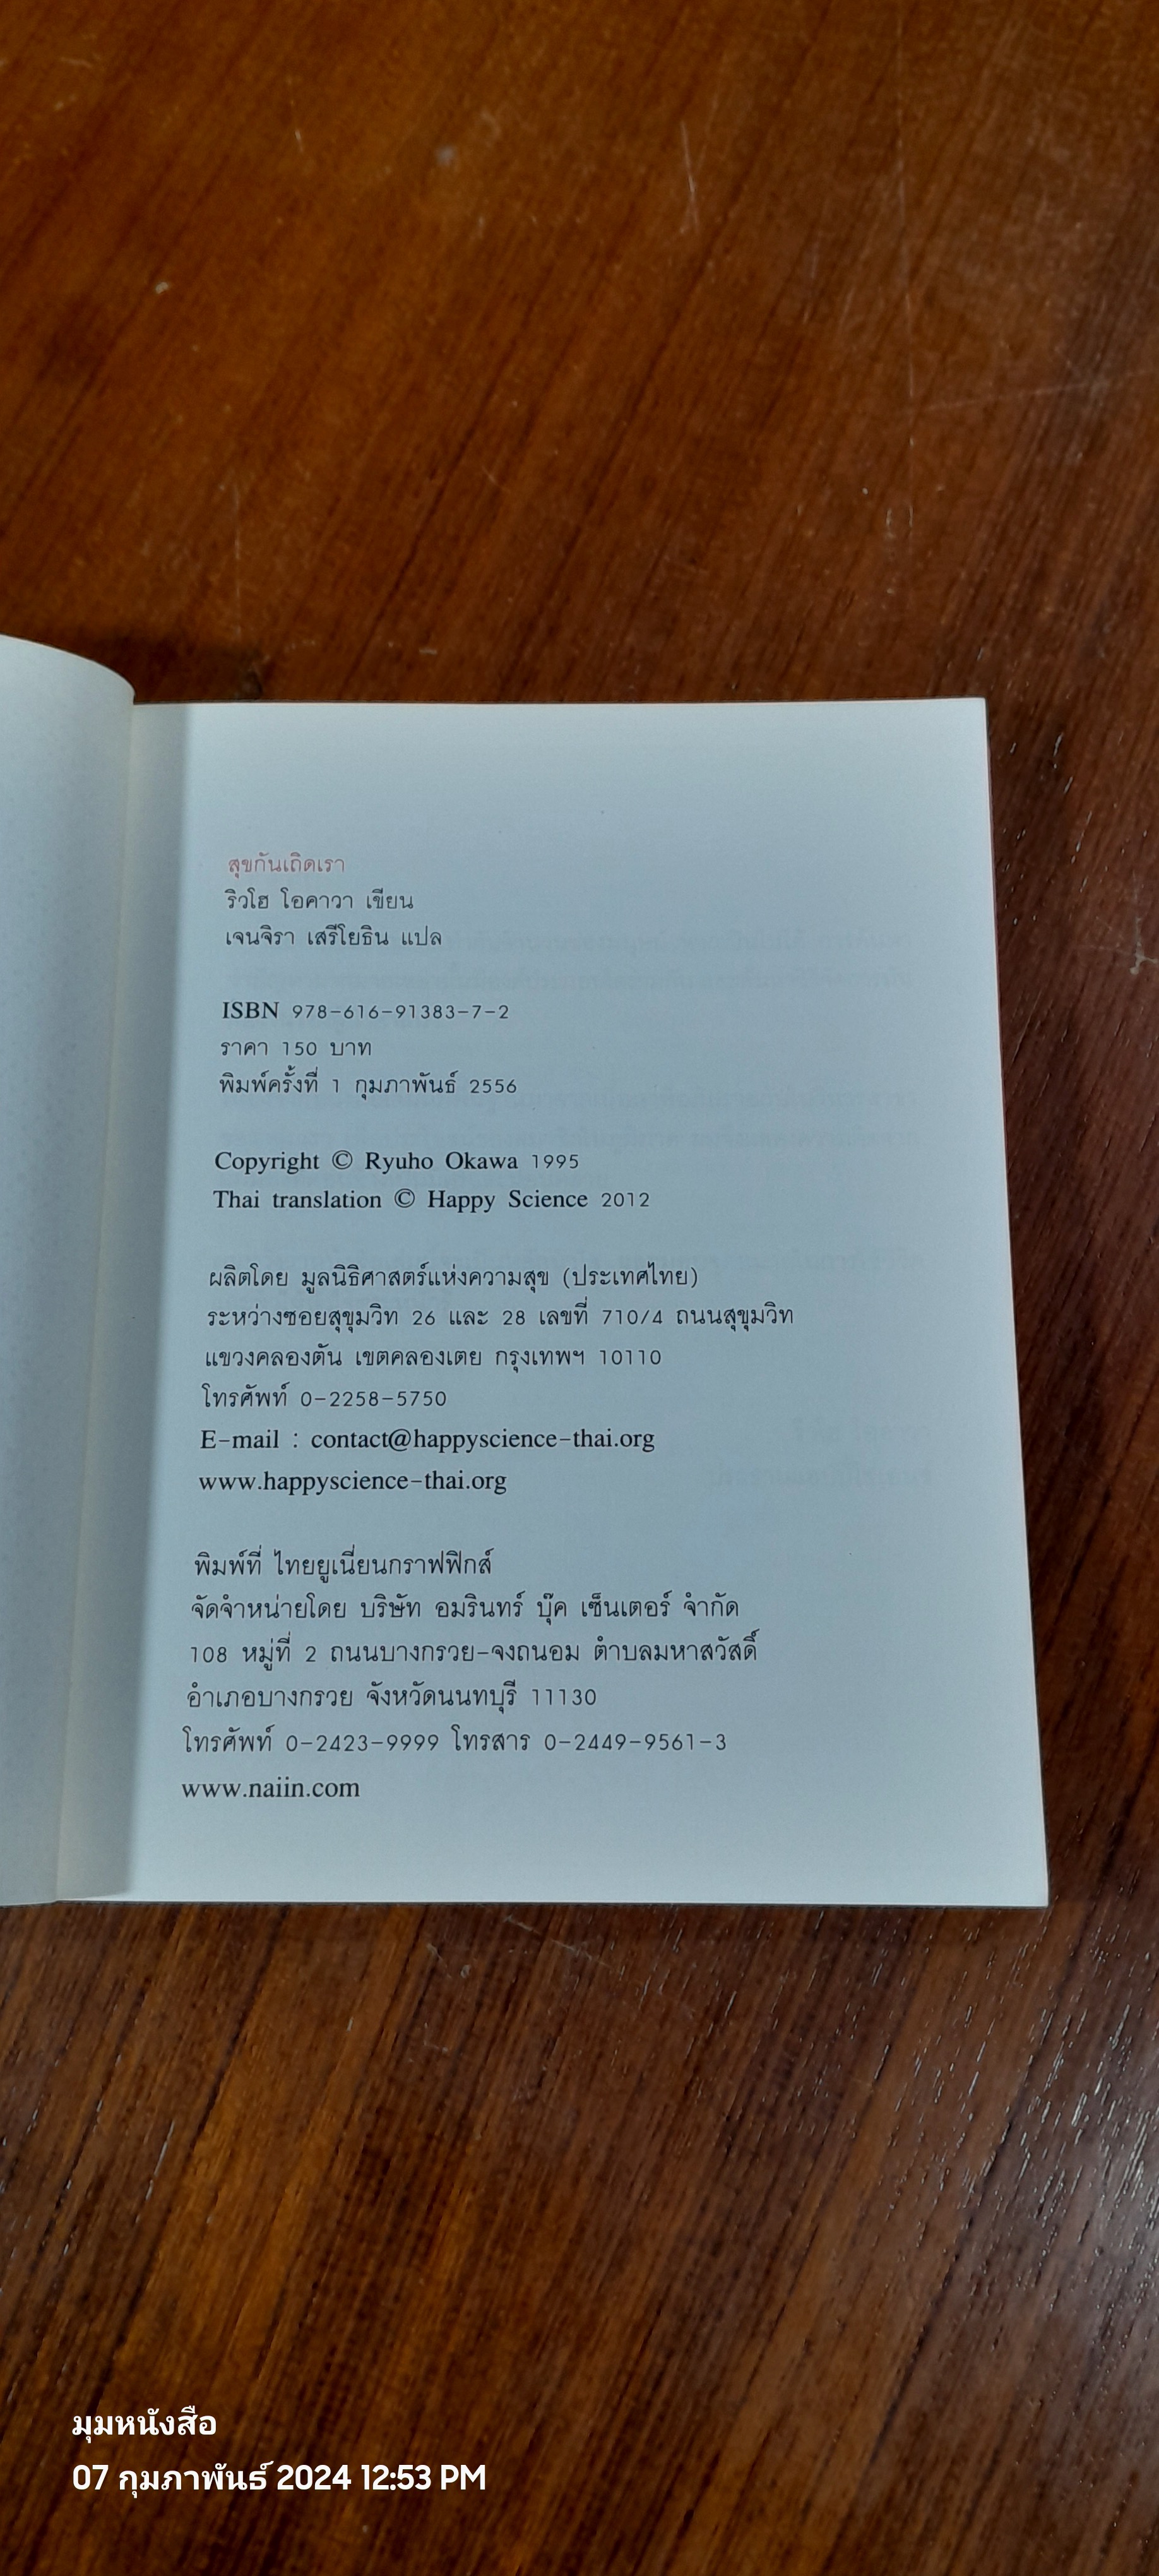 สุขกันเถิดเรา
ริวโฮ โอคาวา เขียน
เจนจิรา เสรีโยธิน แปล
ISBN 978-616-91383-7-2
ราคา 150 บาท
พิมพ์ครั้งที่ 1 กุมภาพันธ์ 2556
Copyright © Ryuho Okawa 1995
Thai translation © Happy Science 2012
ผลิตโดย มูลนิธิศาสตร์แห่งความสุข (ประเทศไทย)
ระหว่างซอยสุขุมวิท 26 และ 28 เลขที่ 710/4 ถนนสุขุมวิท
แขวงคลองตัน เขตคลองเตย กรุงเทพฯ 10110
โทรศัพท์ 0-2258-5750
E-mail : contact@happyscience-thai.org
www.happyscience-thai.org
พิมพ์ที่ ไทยยูเนี่ยนกราฟฟิกส์
จัดจำหน่ายโดย บริษัท อมรินทร์ บุ๊ค เซ็นเตอร์ จำกัด
108 หมู่ที่ 2 ถนนบางกรวย-จงถนอม ตำบลมหาสวัสดิ์
อำเภอบางกรวย จังหวัดนนทบุรี 11130
โทรศัพท์ 0-2423-9999 โทรสาร 0-2449-9561-3
www.naiin.com
มุมหนังสือ
07 กุมภาพันธ์ 2024 12:53 PM